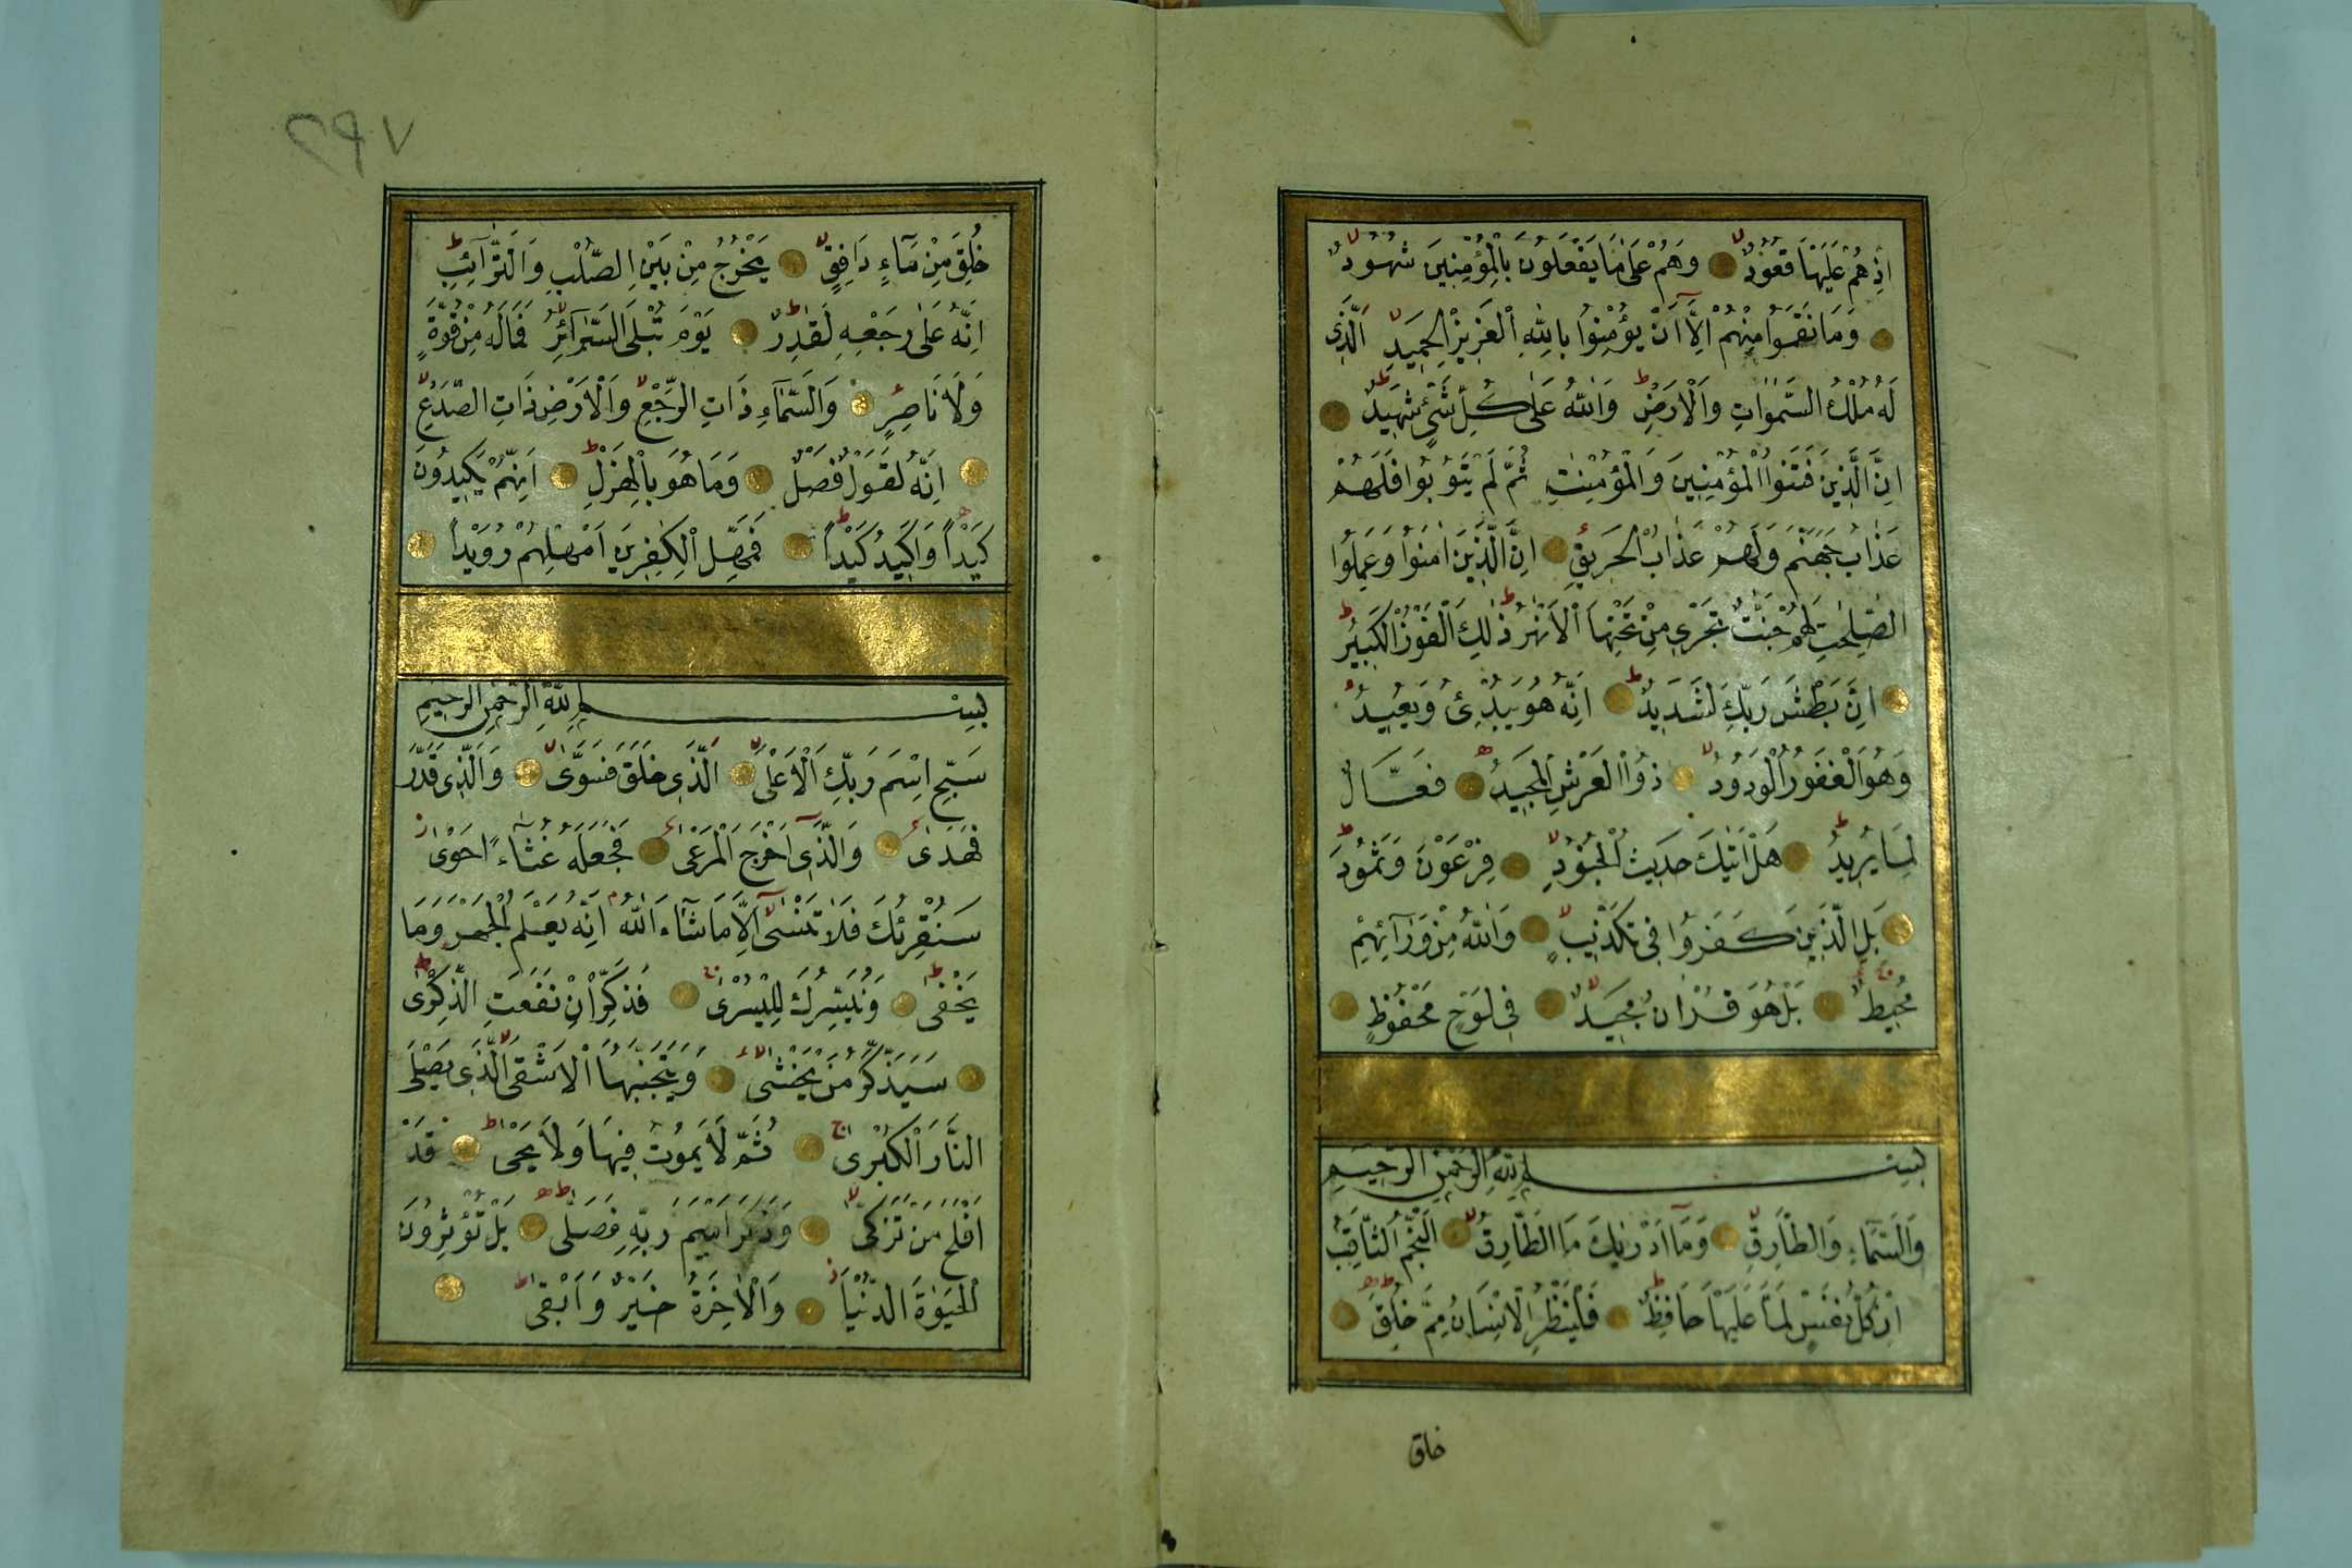 اِذْ هُمْ عَلَيْهَا قُعُودٌ وَهُمْ عَلٰى مَا يَفْعَلُونَ بِالْمُؤْمِنِينَ شُهُودٌ
وَمَا نَقَمُوا مِنْهُمْ اِلَّا اَنْ يُؤْمِنُوا بِاللّٰهِ الْعَزِيزِ الْحَمِيدِ اَلَّذِى
لَهُ مُلْكُ السَّمٰوَاتِ وَالْاَرْضِ وَاللّٰهُ عَلٰى كُلِّ شَىْءٍ شَهِيدٌ
اِنَّ الَّذِينَ فَتَنُوا الْمُؤْمِنِينَ وَالْمُؤْمِنٰتِ ثُمَّ لَمْ يَتُوبُوا فَلَهُمْ
عَذَابُ جَهَنَّمَ وَلَهُمْ عَذَابُ الْحَرِيقِ اِنَّ الَّذِينَ اٰمَنُوا وَعَمِلُوا
الصّٰلِحٰتِ لَهُمْ جَنّٰتٌ تَجْرِى مِنْ تَحْتِهَا الْاَنْهٰرُ ذٰلِكَ الْفَوْزُ الْكَبِيرُ
اِنَّ بَطْشَ رَبِّكَ لَشَدِيدٌ اِنَّهُ هُوَ يُبْدِئُ وَيُعِيدُ
وَهُوَ الْغَفُورُ الْوَدُودُ ذُوا الْعَرْشِ الْمَجِيدُ فَعَّالٌ
لِمَا يُرِيدُ هَلْ اَتٰيكَ حَدِيثُ الْجُنُودِ فِرْعَوْنَ وَثَمُودَ
بَلِ الَّذِينَ كَفَرُوا فِى تَكْذِيبٍ وَاللّٰهُ مِنْ وَرَآئِهِمْ
مُحِيطٌ بَلْ هُوَ قُرْاٰنٌ مَجِيدٌ فِى لَوْحٍ مَحْفُوظٍ
بِسْمِ اللّٰهِ الرَّحْمٰنِ الرَّحِيمِ
وَالسَّمَاءِ وَالطَّارِقِ وَمَا اَدْرٰيكَ مَا الطَّارِقُ اَلنَّجْمُ الثَّاقِبُ
اِنْ كُلُّ نَفْسٍ لَمَّا عَلَيْهَا حَافِظٌ فَلْيَنْظُرِ الْاِنْسَانُ مِمَّ خُلِقَ
خلق
٢٩٧
خُلِقَ مِنْ مَاءٍ دَافِقٍ يَخْرُجُ مِنْ بَيْنِ الصُّلْبِ وَالتَّرَآئِبِ
اِنَّهُ عَلٰى رَجْعِهِ لَقَادِرٌ يَوْمَ تُبْلَى السَّرَآئِرُ فَمَا لَهُ مِنْ قُوَّةٍ
وَلَا نَاصِرٍ وَالسَّمَآءِ ذَاتِ الرَّجْعِ وَالْاَرْضِ ذَاتِ الصَّدْعِ
اِنَّهُ لَقَوْلٌ فَصْلٌ وَمَا هُوَ بِالْهَزْلِ اِنَّهُمْ يَكِيدُونَ
كَيْدًا وَاَكِيدُ كَيْدًا فَمَهِّلِ الْكٰفِرِينَ اَمْهِلْهُمْ رُوَيْدًا
بِسْمِ اللّٰهِ الرَّحْمٰنِ الرَّحِيمِ
سَبِّحِ اسْمَ رَبِّكَ الْاَعْلٰى اَلَّذِى خَلَقَ فَسَوّٰى وَالَّذِى قَدَّرَ
فَهَدٰى وَالَّذِى اَخْرَجَ الْمَرْعٰى فَجَعَلَهُ غُثَاءً اَحْوٰى
سَنُقْرِئُكَ فَلَا تَنْسٰى اِلَّا مَا شَاءَ اللّٰهُ اِنَّهُ يَعْلَمُ الْجَهْرَ وَمَا
يَخْفٰى وَنُيَسِّرُكَ لِلْيُسْرٰى فَذَكِّرْ اِنْ نَفَعَتِ الذِّكْرٰى
سَيَذَّكَّرُ مَنْ يَخْشٰى وَيَتَجَنَّبُهَا الْاَشْقَى الَّذِى يَصْلَى
النَّارَ الْكُبْرٰى ثُمَّ لَا يَمُوتُ فِيهَا وَلَا يَحْيٰى قَدْ
اَفْلَحَ مَنْ تَزَكّٰى وَذَكَرَ اسْمَ رَبِّهِ فَصَلّٰى بَلْ تُؤْثِرُونَ
الْحَيٰوةَ الدُّنْيَا وَالْاٰخِرَةُ خَيْرٌ وَاَبْقٰى